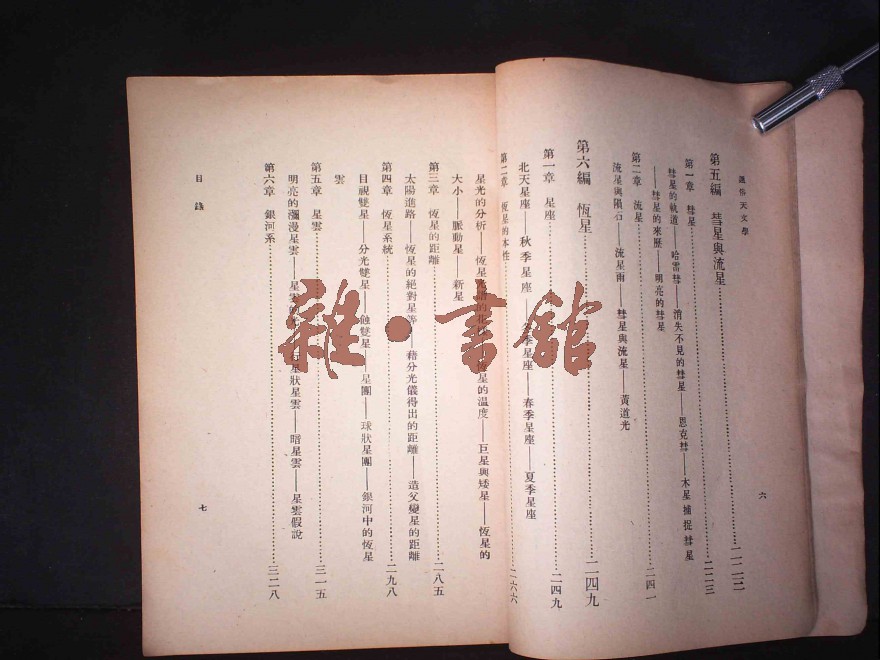 通俗天文學
第五編 彗星與流星
第一章 彗星……二二三
彗星的軌道——哈雷彗——消失不見的彗星——恩克彗——木星捕捉彗星
——彗星的來歷——明亮的彗星
第二章 流星……二四一
流星與隕石——流星雨——彗星與流星——黃道光
第六編 恆星……二四九
第一章 星座……二四九
北天星座——秋季星座——季星座——春季星座——夏季星座
第二章 恆星的本性……二六六
六
星光的分析——恆星的——恆星的溫度——巨星與矮星——恆星的
大小——脈動星——新星
第三章 恆星的距離……二八五
太陽進路——恆星的絕對星等——藉分光儀得出的距離——造父變星的距離
第四章 恆星系統……二九八
目視雙星——分光雙星——蝕雙星——星團——球狀星團——銀河中的恆星
雲
第五章 星雲……三一五
明亮的瀰漫星雲——星雲——行星狀星雲——暗星雲——星雲假說
第六章 銀河系……三二八
目錄
七
雜·書館